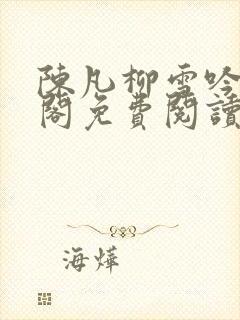 陳凡柳雪吟
閣免費閱讀
海燁